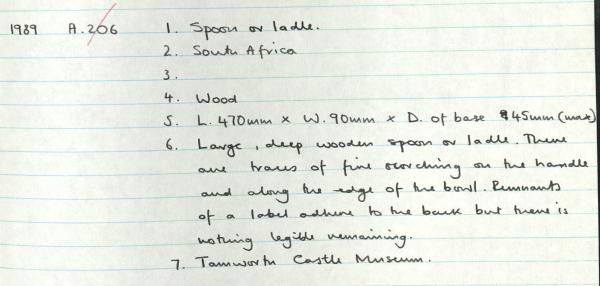 1989 A.206 1. Spoon or ladle.
2. South Africa
3.
4. Wood
5. L. 470mm x W. 90mm x D. of base 45mm (max)
6. Large, deep wooden spoon or ladle. There
are traces of fine scorching on the handle
and along the edge of the bowl. Remnants
of a label adhere to the back but there is
nothing legible remaining.
7. Tamworth Castle Museum.